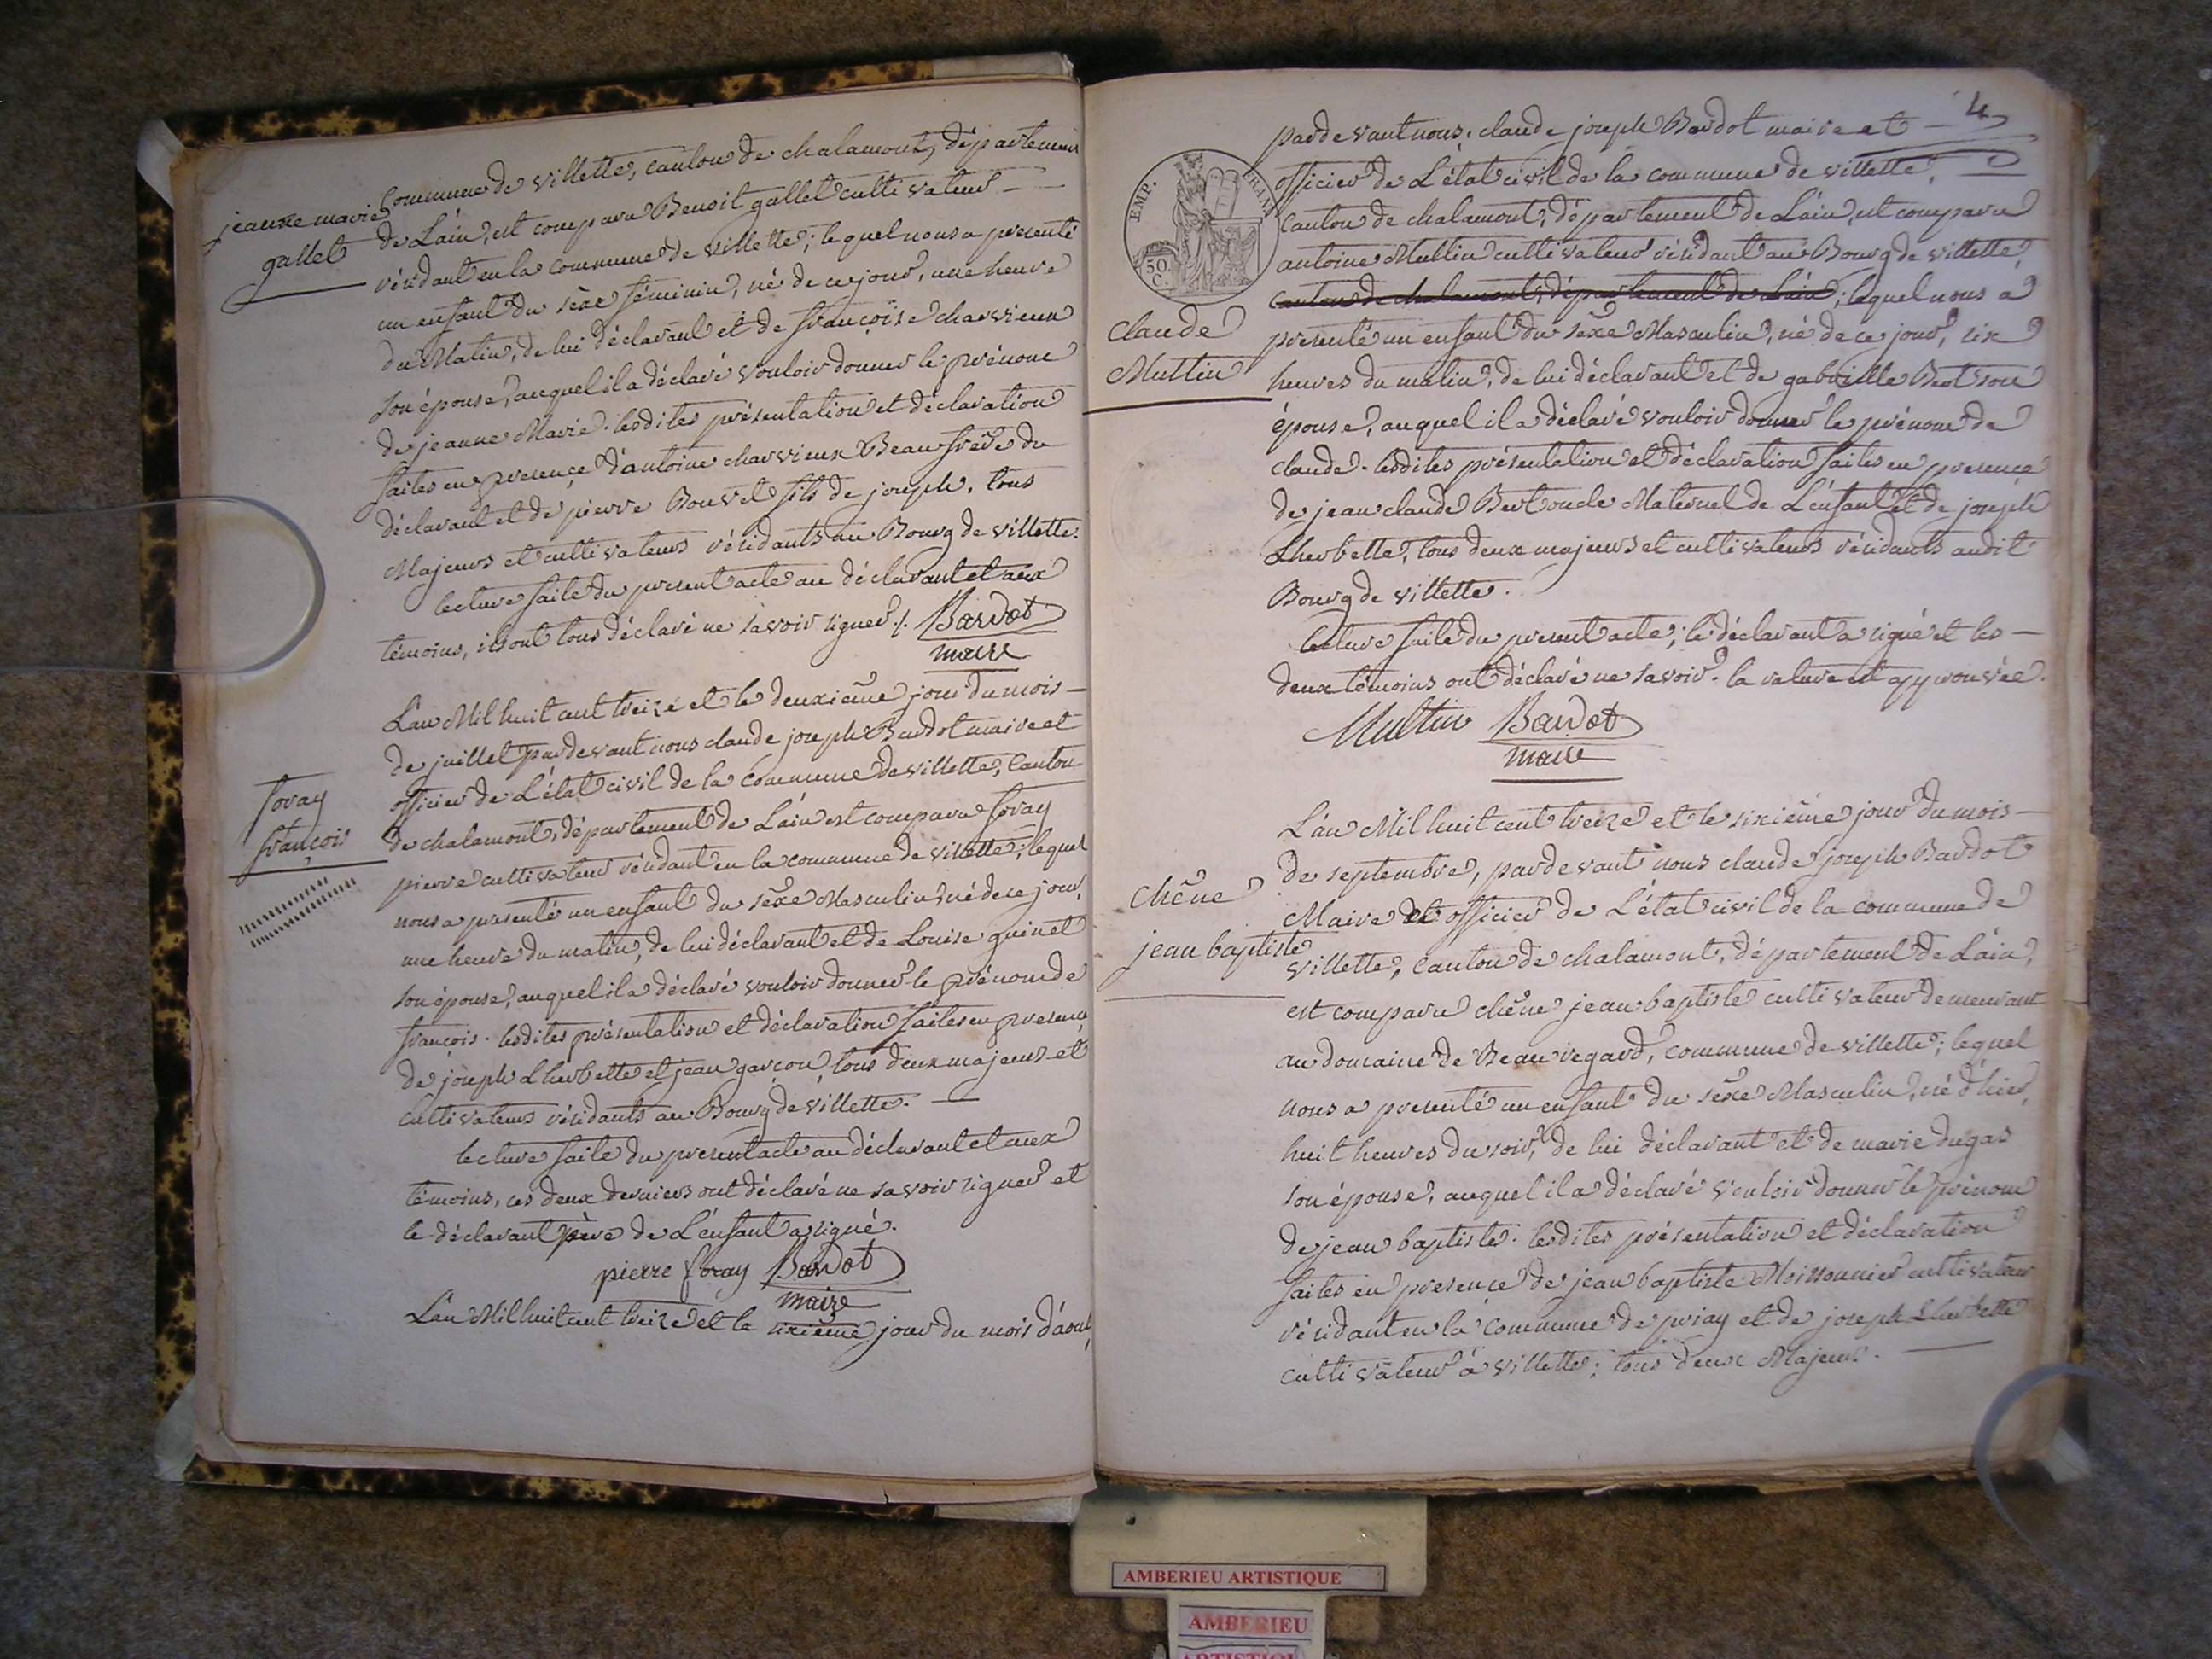 commune de villette, canton de chalamont, département
jeanne marie
gallet
de L'ain, est comparu Benoit gallet cultivateur
résidant en la commune de villette; lequel nous a presenté
un enfant du sèxe féminin, né de ce jour, une heure
du Matin, de lui déclarant et de françoise charvieux
son épouse, auquel il a déclaré vouloir donner le prénom
de jeanne Marie. lesdites présentation et déclaration
faites en presence d'antoine charvieux Beau frère du
déclarant et de pierre Bouvet fils de joseph, tous
Majeurs et cultivateurs résidants au Bourg de villette.
lecture faite du present acte au déclarant et aux
témoins, ils ont tous déclaré ne savoir signer ./. Bardot
maire
L'an Mil huit cent treize et le deuxième jour du mois
de juillet pardevant nous claude joseph Bardot maire et
officier de L'état civil de la commune de villette, canton
de chalamont, département de L'ain est comparu foray
foray
françois
pierre cultivateur résidant en la commune de villette; lequel
nous a presenté un enfant du sèxe Masculin, né de ce jour,
une heure du matin, de lui déclarant et de Louise guinet
son épouse, auquel il a déclaré vouloir donner le prénom de
françois. lesdites présentation et déclaration faites en presence
de joseph Lherbette et jean garçon, tous deux majeurs et
cultivateurs résidants au Bourg de villette.
lecture faite du present acte au déclarant et aux
témoins, ces deux derniers ont déclaré ne savoir signer et
le déclarant père de L'enfant a signé.
pierre foray Bardot
maire
L'an Mil huit cent treize et le sixième jour du mois d'aout,
4
pardevant nous, claude joseph Bardot maire et
officier de L'état civil de la commune de villette,
EMP. FRAN.
50 C.
canton de chalamont, département de L'ain, est comparu
antoine Muttin cultivateur résidant au Bourg de villette,
canton de chalamont, département de L'ain; lequel nous a
claude
Muttin
presenté un enfant du sèxe Masculin, né de ce jour, six
heures du matin, de lui déclarant et de gabrielle Bert son
épouse, auquel il a déclaré vouloir donner le prénom de
claude. lesdites présentation et déclaration faites en presence
de jean claude Bert oncle Maternel de L'enfant et de joseph
Lherbette, tous deux majeurs et cultivateurs résidants audit
Bourg de villette.
lecture faite du present acte; le déclarant a signé et les
deux témoins ont déclaré ne savoir. la rature est approuvée.
Muttin Bardot
maire
L'an Mil huit cent treize et le sixième jour du mois
de septembre, pardevant nous claude joseph Bardot
chêne
jean baptiste
Maire et officier de L'état civil de la commune de
villette, canton de chalamont, département de L'ain,
est comparu chêne jean baptiste cultivateur demeurant
au domaine de Beauregard, commune de villette; lequel
nous a presenté un enfant du sèxe Masculin, né d'hier,
huit heures du soir, de lui déclarant et de marie dugas
son épouse, auquel il a déclaré vouloir donner le prénom
de jean baptiste. lesdites présentation et déclaration
faites en presence de jean baptiste Moissonnier cultivateur
résidant en la commune de priay et de joseph Lherbette
cultivateur à villette; tous deux Majeurs.
AMBERIEU ARTISTIQUE
AMBERIEU
ARTISTIQUE